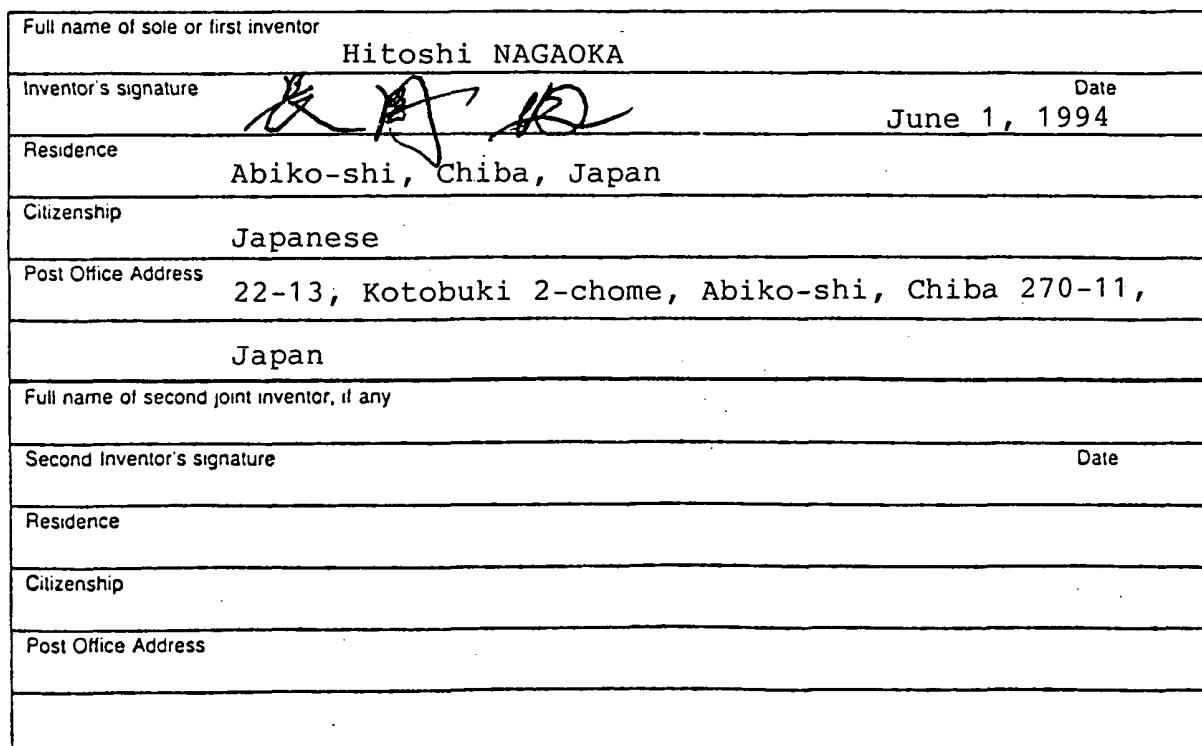 Full name of sole or first inventor
Hitoshi NAGAOKA
Inventor's signature
Date
June 1, 1994
Residence
Abiko-shi, Chiba, Japan
Citizenship
Japanese
Post Office Address
22-13, Kotobuki 2-chome, Abiko-shi, Chiba 270-11,
Japan
Full name of second joint inventor, if any
Second Inventor's signature
Date
Residence
Citizenship
Post Office Address